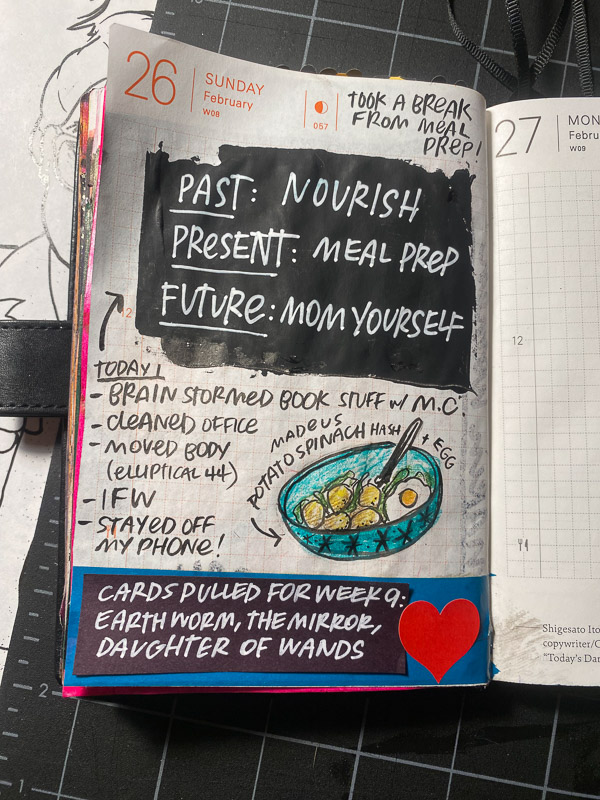 26
SUNDAY
February
W08
057
TOOK A BREAK
FROM MEAL
PREP!
PAST: NOURISH
PRESENT: MEAL PREP
FUTURE: MOM YOURSELF
12
TODAY
- BRAIN STORMED BOOK STUFF W/ M.C.
- CLEANED OFFICE
- MOVED BODY
(ELLIPTICAL 44)
- IFW
- STAYED OFF
MY PHONE!
MADE US
POTATO SPINACH HASH + EGG
CARDS PULLED FOR WEEK 9:
EARTHWORM, THE MIRROR,
DAUGHTER OF WANDS
27
MON
Febru
W09
12
Shigesato Ito
copywriter/C
"Today's Dar
2
1